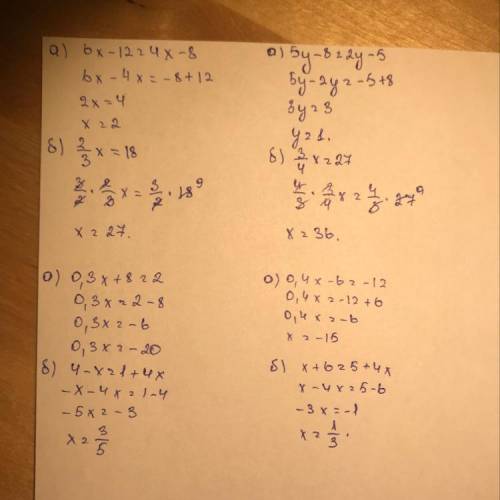 а) 6x-12=4x-8
6x-4x=-8+12
2x=4
x=2
б) 2/3 x=18
3/2 · 2/3 x = 3/2 · 18 9
x=27.
а) 5y-8=2y-5
5y-2y=-5+8
3y=3
y=1.
б) 3/4 x=27
4/3 · 3/4 x = 4/3 · 27 9
x=36.
а) 0,3x+8=2
0,3x=2-8
0,3x=-6
0,3x=-20
б) 4-x=1+4x
-x-4x=1-4
-5x=-3
x=3/5
а) 0,4x-6=-12
0,4x=-12+6
0,4x=-6
x=-15
б) x+6=5+4x
x-4x=5-6
-3x=-1
x=1/3.